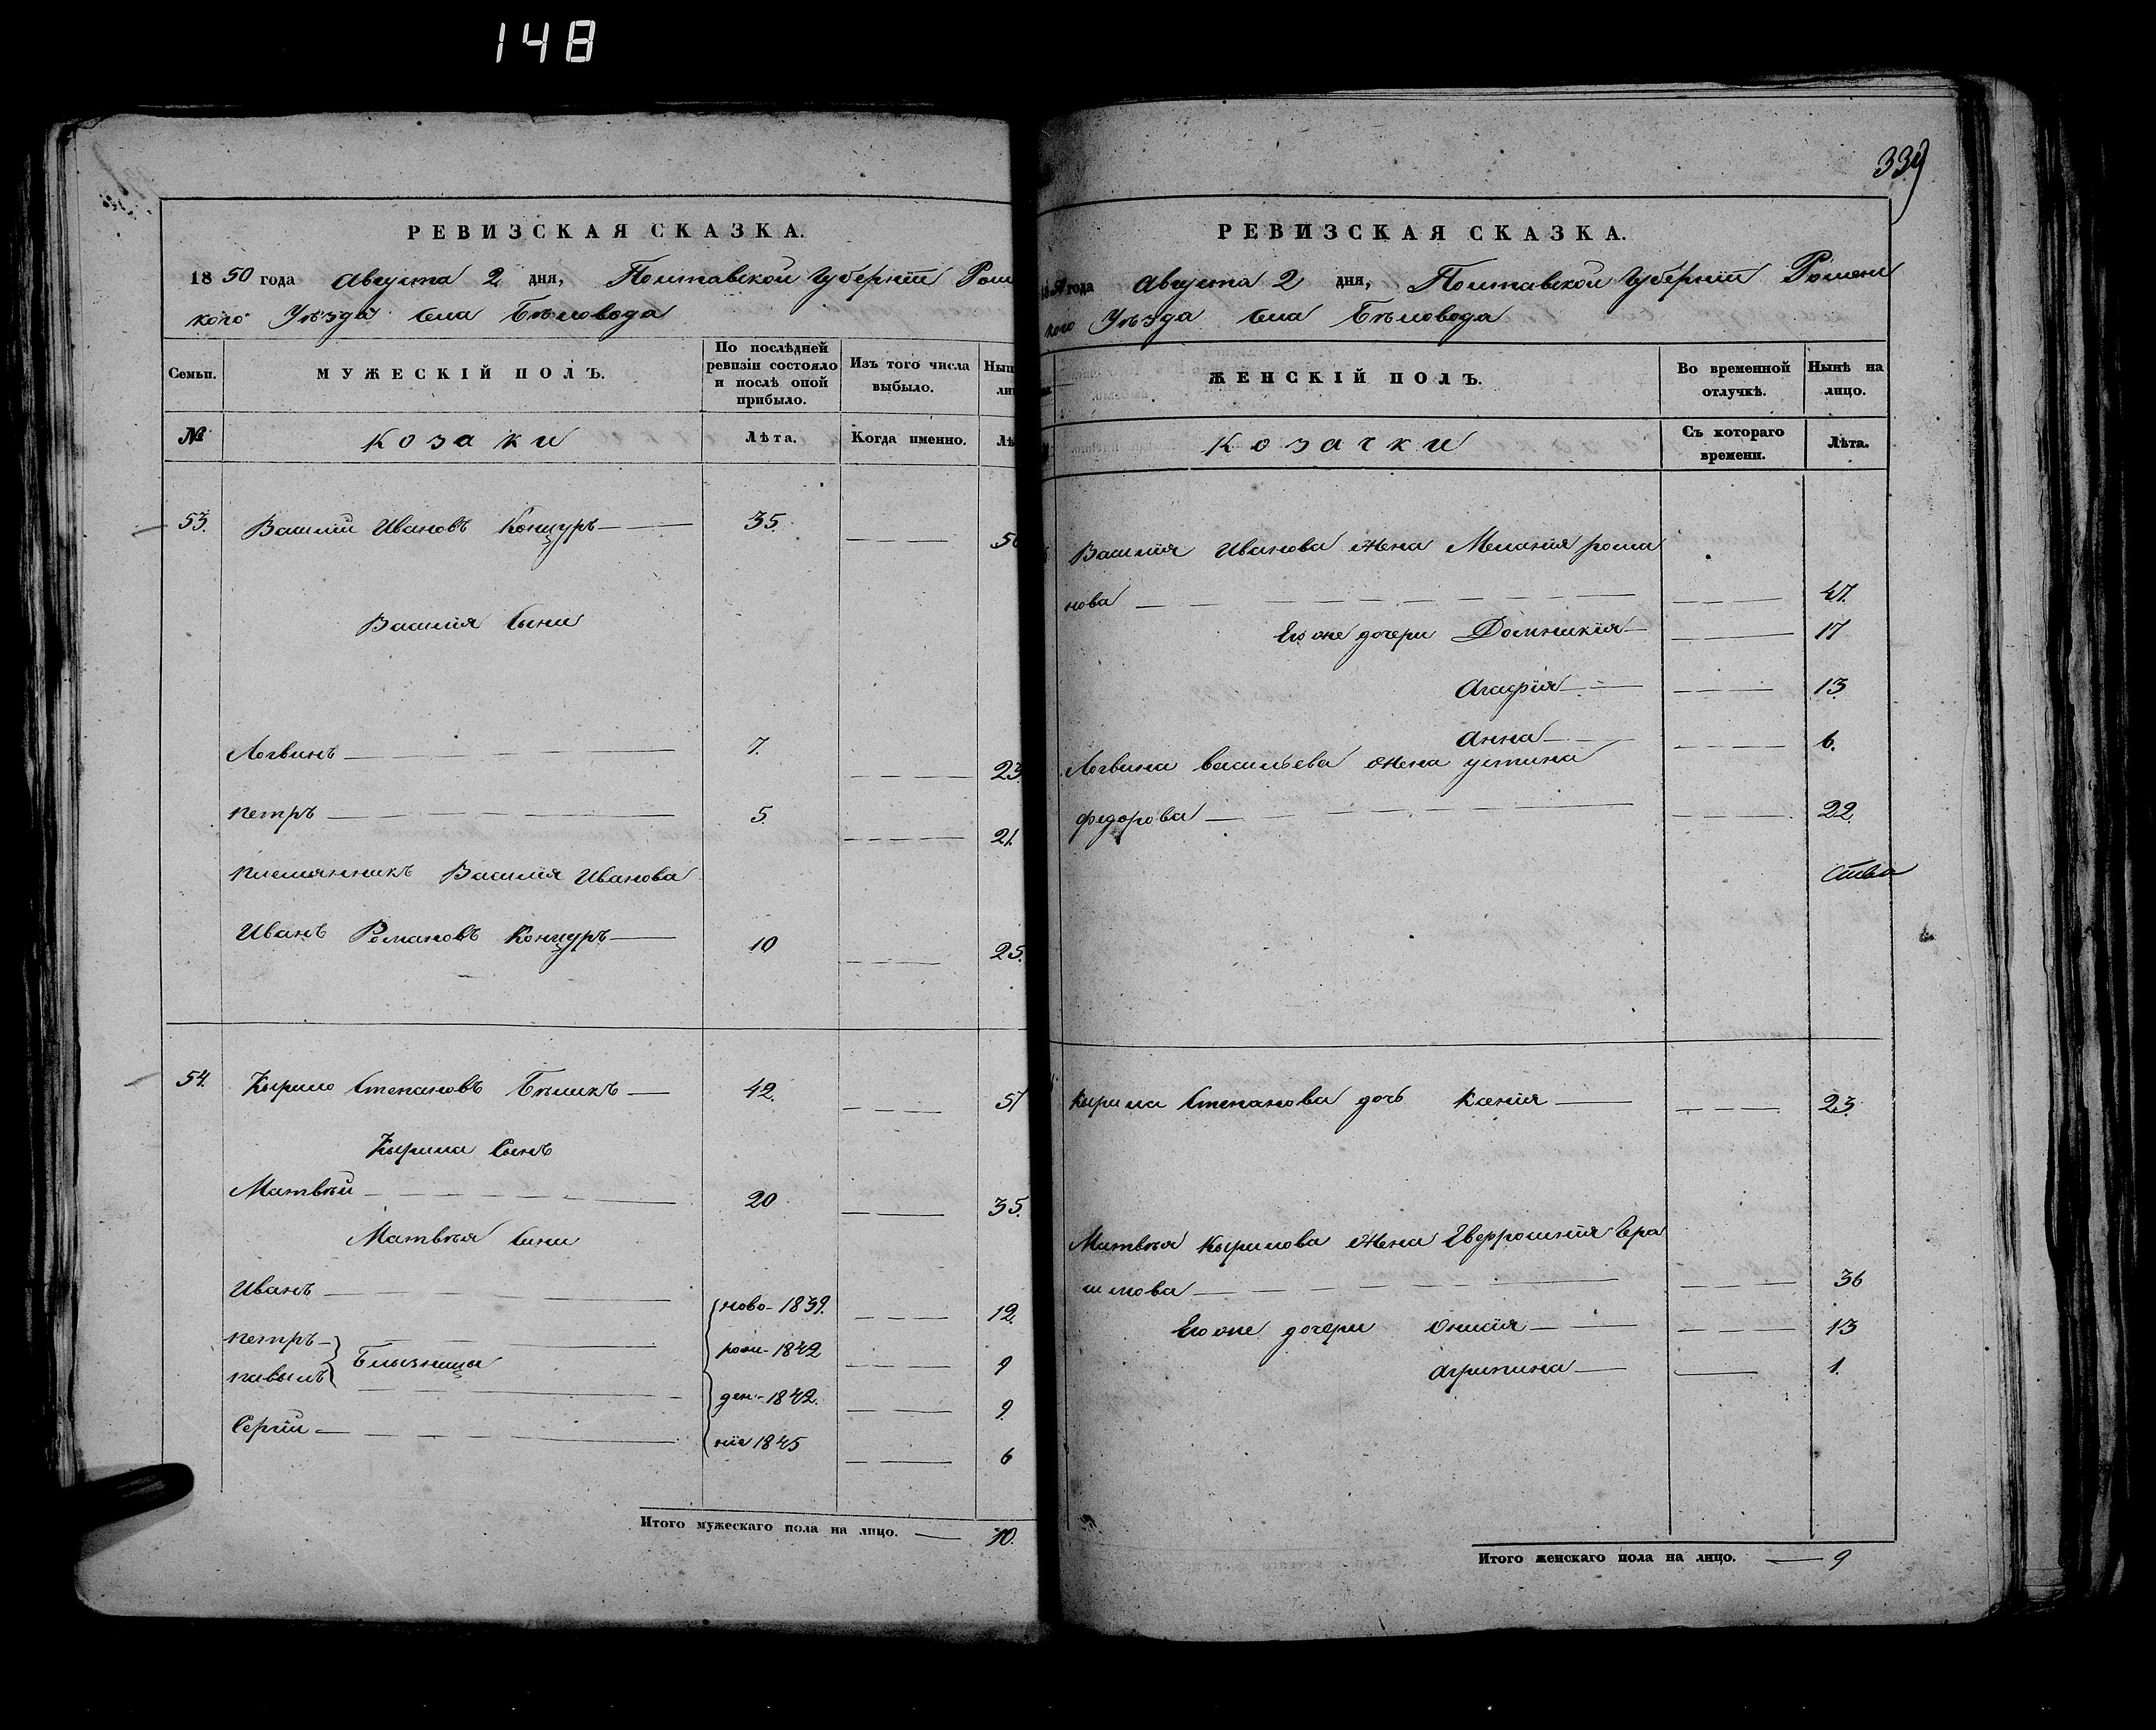 148
РЕВИЗСКАЯ СКАЗКА.
1850 года Августа 2 дня, Полтавской Губерніи Ром
кого Уѣзда села Бѣловода
Семьи.
МУЖЕСКІЙ ПОЛЪ.
По послѣдней ревизіи состояло и послѣ оной прибыло.
Изъ того числа выбыло.
№
Козаки
Лѣта.
Когда именно.
53. Василій Ивановъ Концуръ 35.
Василія Сыни
Логвинъ 7. 23.
Петръ 5. 21.
племянникъ Василія Иванова
Иванъ Романовъ Концуръ 10 25.
54. Кырило Степановъ Бѣликъ 42. 57
Кырила Сынъ
Матвѣй 20 35.
Матвѣя Сыни
Иванъ ново- 1839. 12.
Петръ рож- 1842 9
Близница
Павылъ ден- 1842. 9.
Сергій ніе 1845 6
Итого мужескаго пола на лицо. 10.
339
РЕВИЗСКАЯ СКАЗКА.
1850 года Августа 2 дня, Полтавской Губерніи Ромен
кого Уѣзда села Бѣловода
ЖЕНСКІЙ ПОЛЪ.
Во временной отлучкѣ.
Нынѣ на лицо.
Козачки
Съ котораго времени.
Лѣта.
Василія Иванова жена Меланія рома
нова 47.
Его же дочери Домникия 17
Агафія 13.
Анна 6.
Логвина васильева жена устина
федорова 22.
Кырила Степанова дочъ Ксенія 23.
Матвѣя Кырилова жена Евфросинія Гера
симова 36
Его же дочери Онисія 13
Агрипина 1.
Итого женскаго пола на лицо. 9